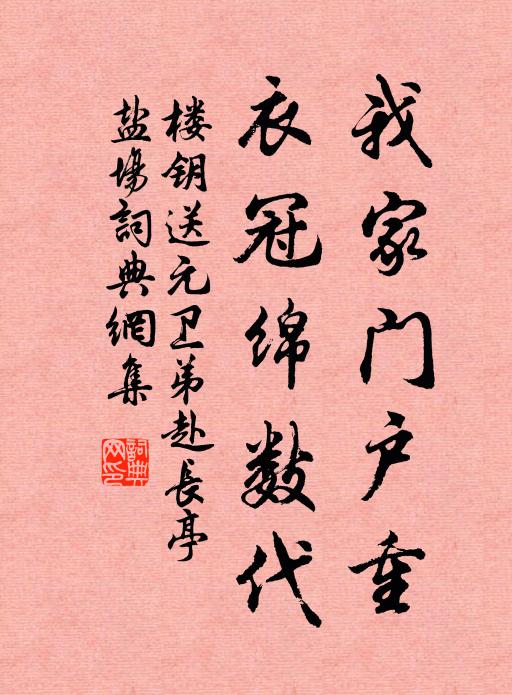 我家门户重
衣冠绵数代
楼钥送元卫弟赴长亭
盐场词典網集
詞典网印